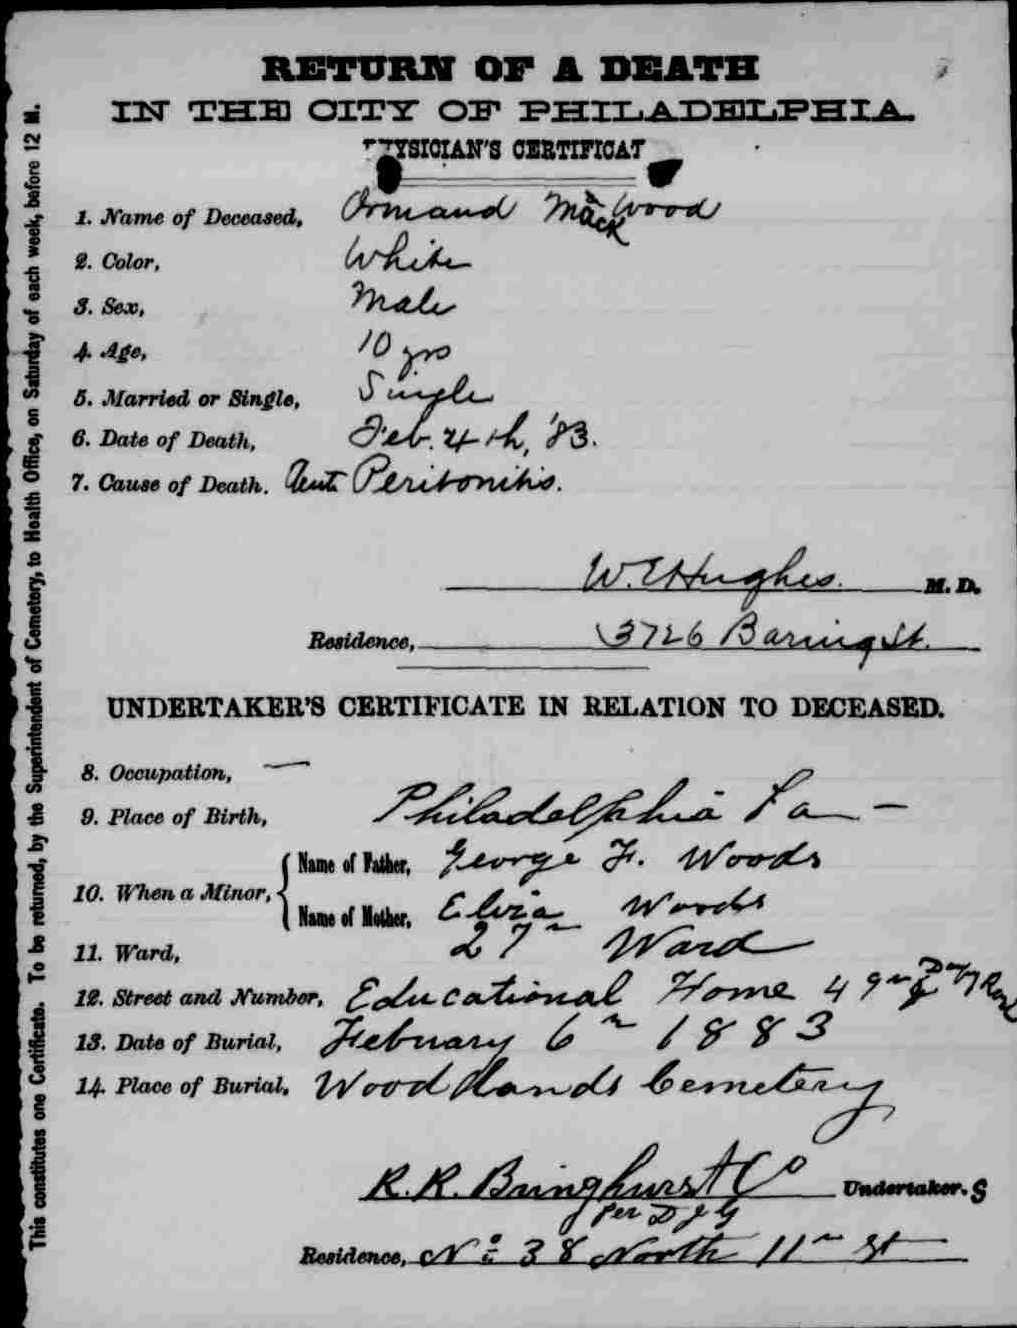 RETURN OF A DEATH
IN THE CITY OF PHILADELPHIA.
PHYSICIAN'S CERTIFICAT
1. Name of Deceased, Ormand Mack Wood
2. Color, White
3. Sex, Male
4. Age, 10 yrs
5. Married or Single, Single
6. Date of Death, Feb. 4th, '83.
7. Cause of Death. Acute Peritonitis.
W. E. Hughes. M. D.
Residence, 3726 Baring St.
UNDERTAKER'S CERTIFICATE IN RELATION TO DECEASED.
8. Occupation, —
9. Place of Birth, Philadelphia Pa —
10. When a Minor,
Name of Father, George F. Woods
Name of Mother, Elvia Woods
11. Ward, 27th Ward
12. Street and Number, Educational Home 49th &
13. Date of Burial, February 6th 1883
14. Place of Burial, Woodlands Cemetery
R. R. Bringhurst & Co Undertaker. S
Per D J G
Residence, No 38 North 11th St
This constitutes one Certificate. To be returned, by the Superintendent of Cemetery, to Health Office, on Saturday of each week, before 12 M.